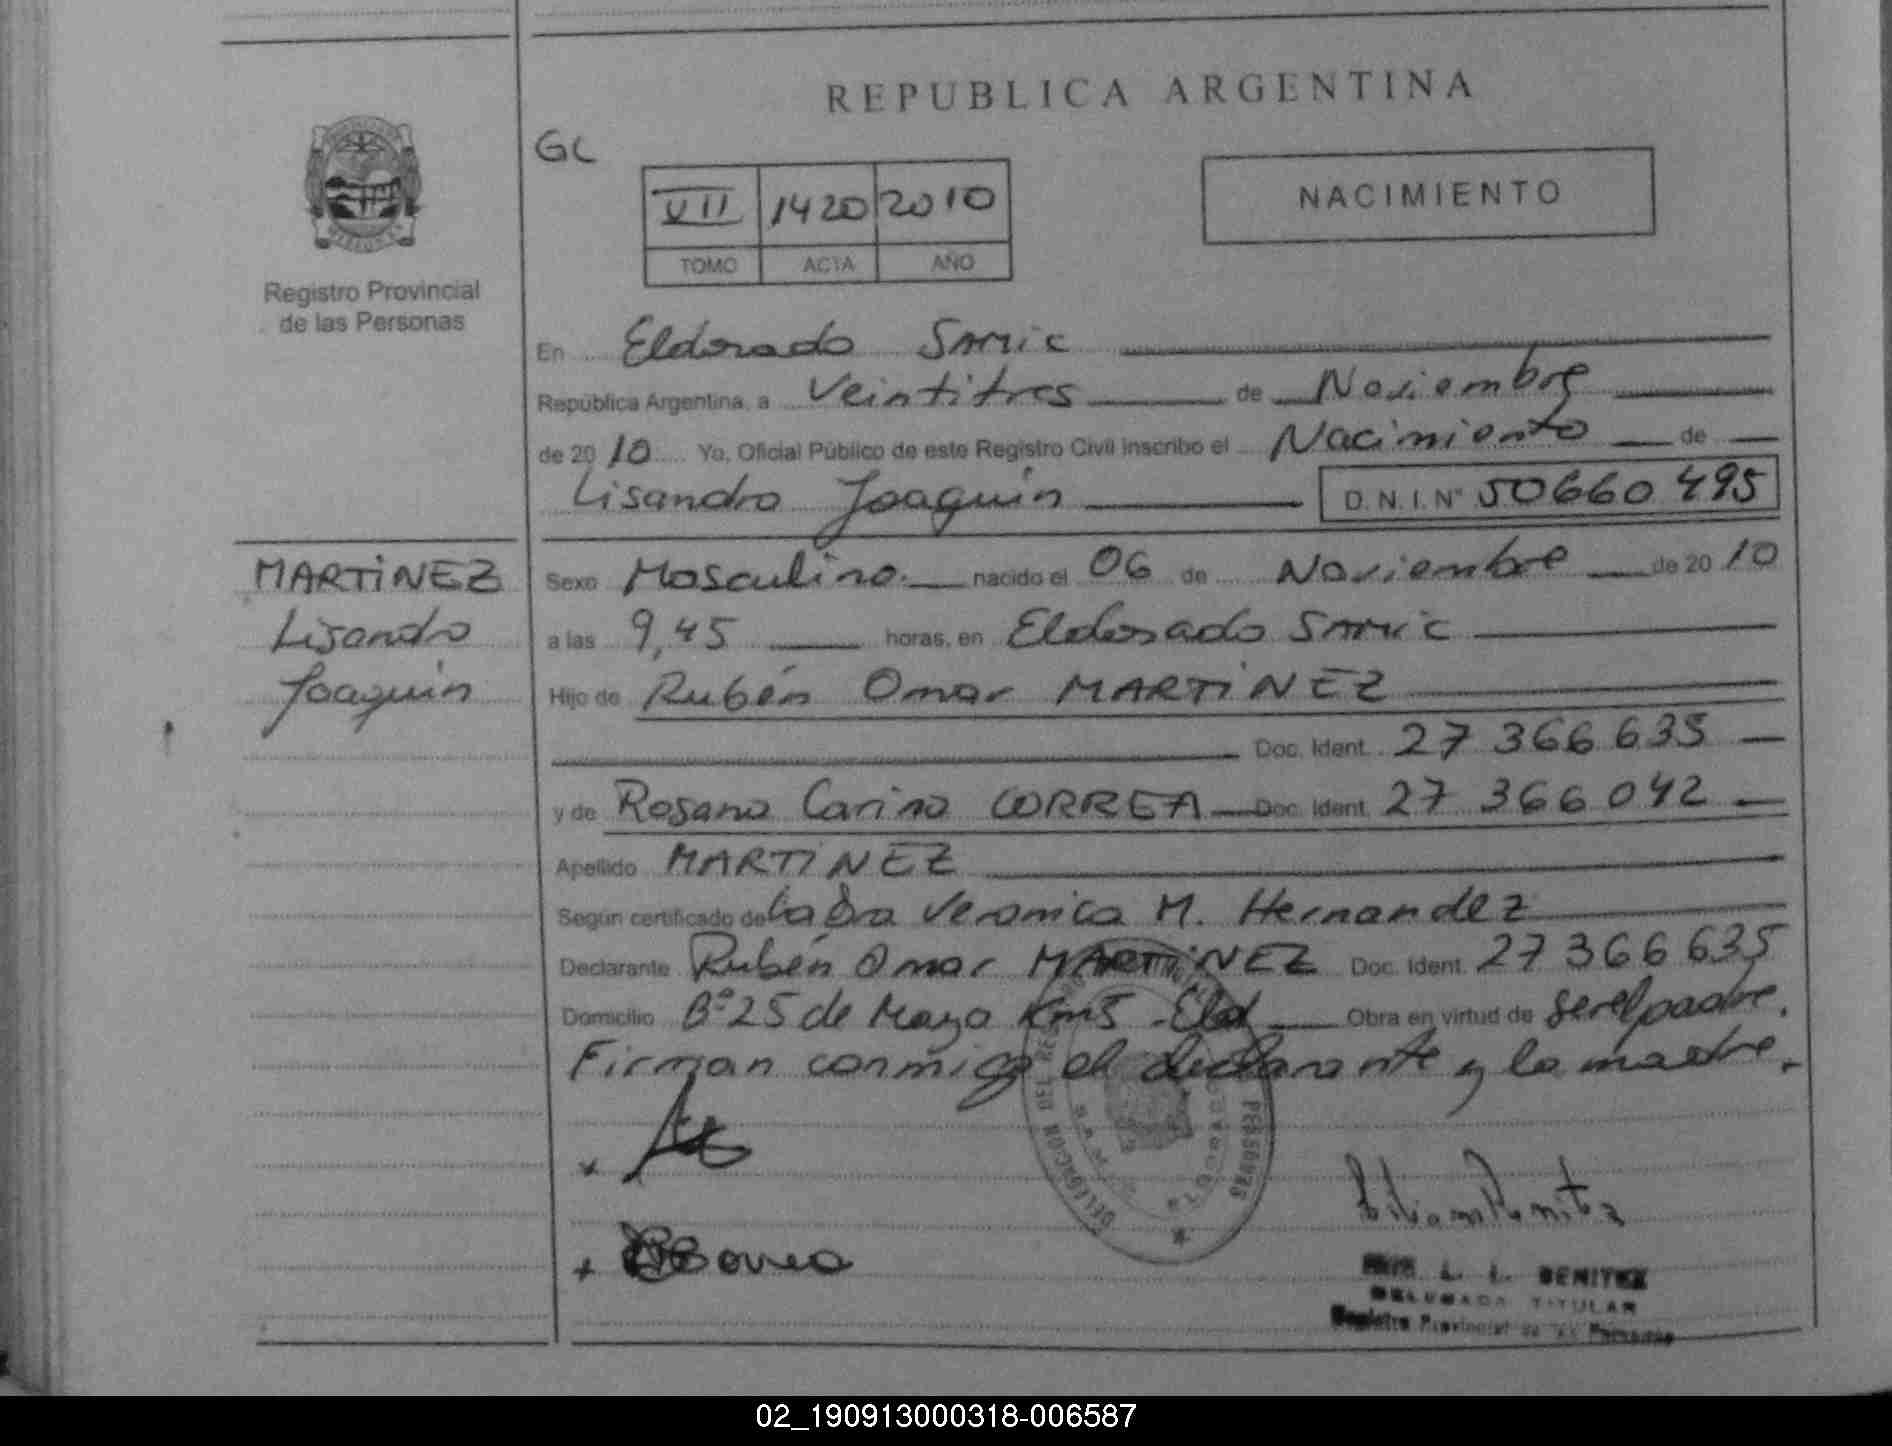 REPUBLICA ARGENTINA
GC
VII 1420 2010
TOMO ACTA AÑO
NACIMIENTO
Registro Provincial
de las Personas
En Eldorado Samic
República Argentina, a Veintitres de Noviembre
de 2010 Yo, Oficial Público de este Registro Civil inscribo el Nacimiento de
Lisandro Joaquín D.N.I.Nº 50660495
MARTiNEZ
Lisandro
Joaquín
Sexo Masculino. nacido el 06 de Noviembre de 2010
a las 9,45 horas, en Eldorado Samic
Hijo de Rubén Omar MARTiNEZ
Doc. Ident. 27 366 635
y de Rosana Carina CORREA Doc. Ident. 27 366 042
Apellido MARTiNEZ
Según certificado de la Dra Veronica M. Hernandez
Declarante Rubén Omar MARTiNEZ Doc. Ident. 27 366 635
Domicilio Bº 25 de Mayo Km5 - Eld Obra en virtud de ser el padre.
Firman conmigo el declarante y la madre.
DELEGACION DEL REGISTRO PERSONAS
L. I. BENITEZ
DELEGADA TITULAR
Registro Provincial de las Personas
02_190913000318-006587